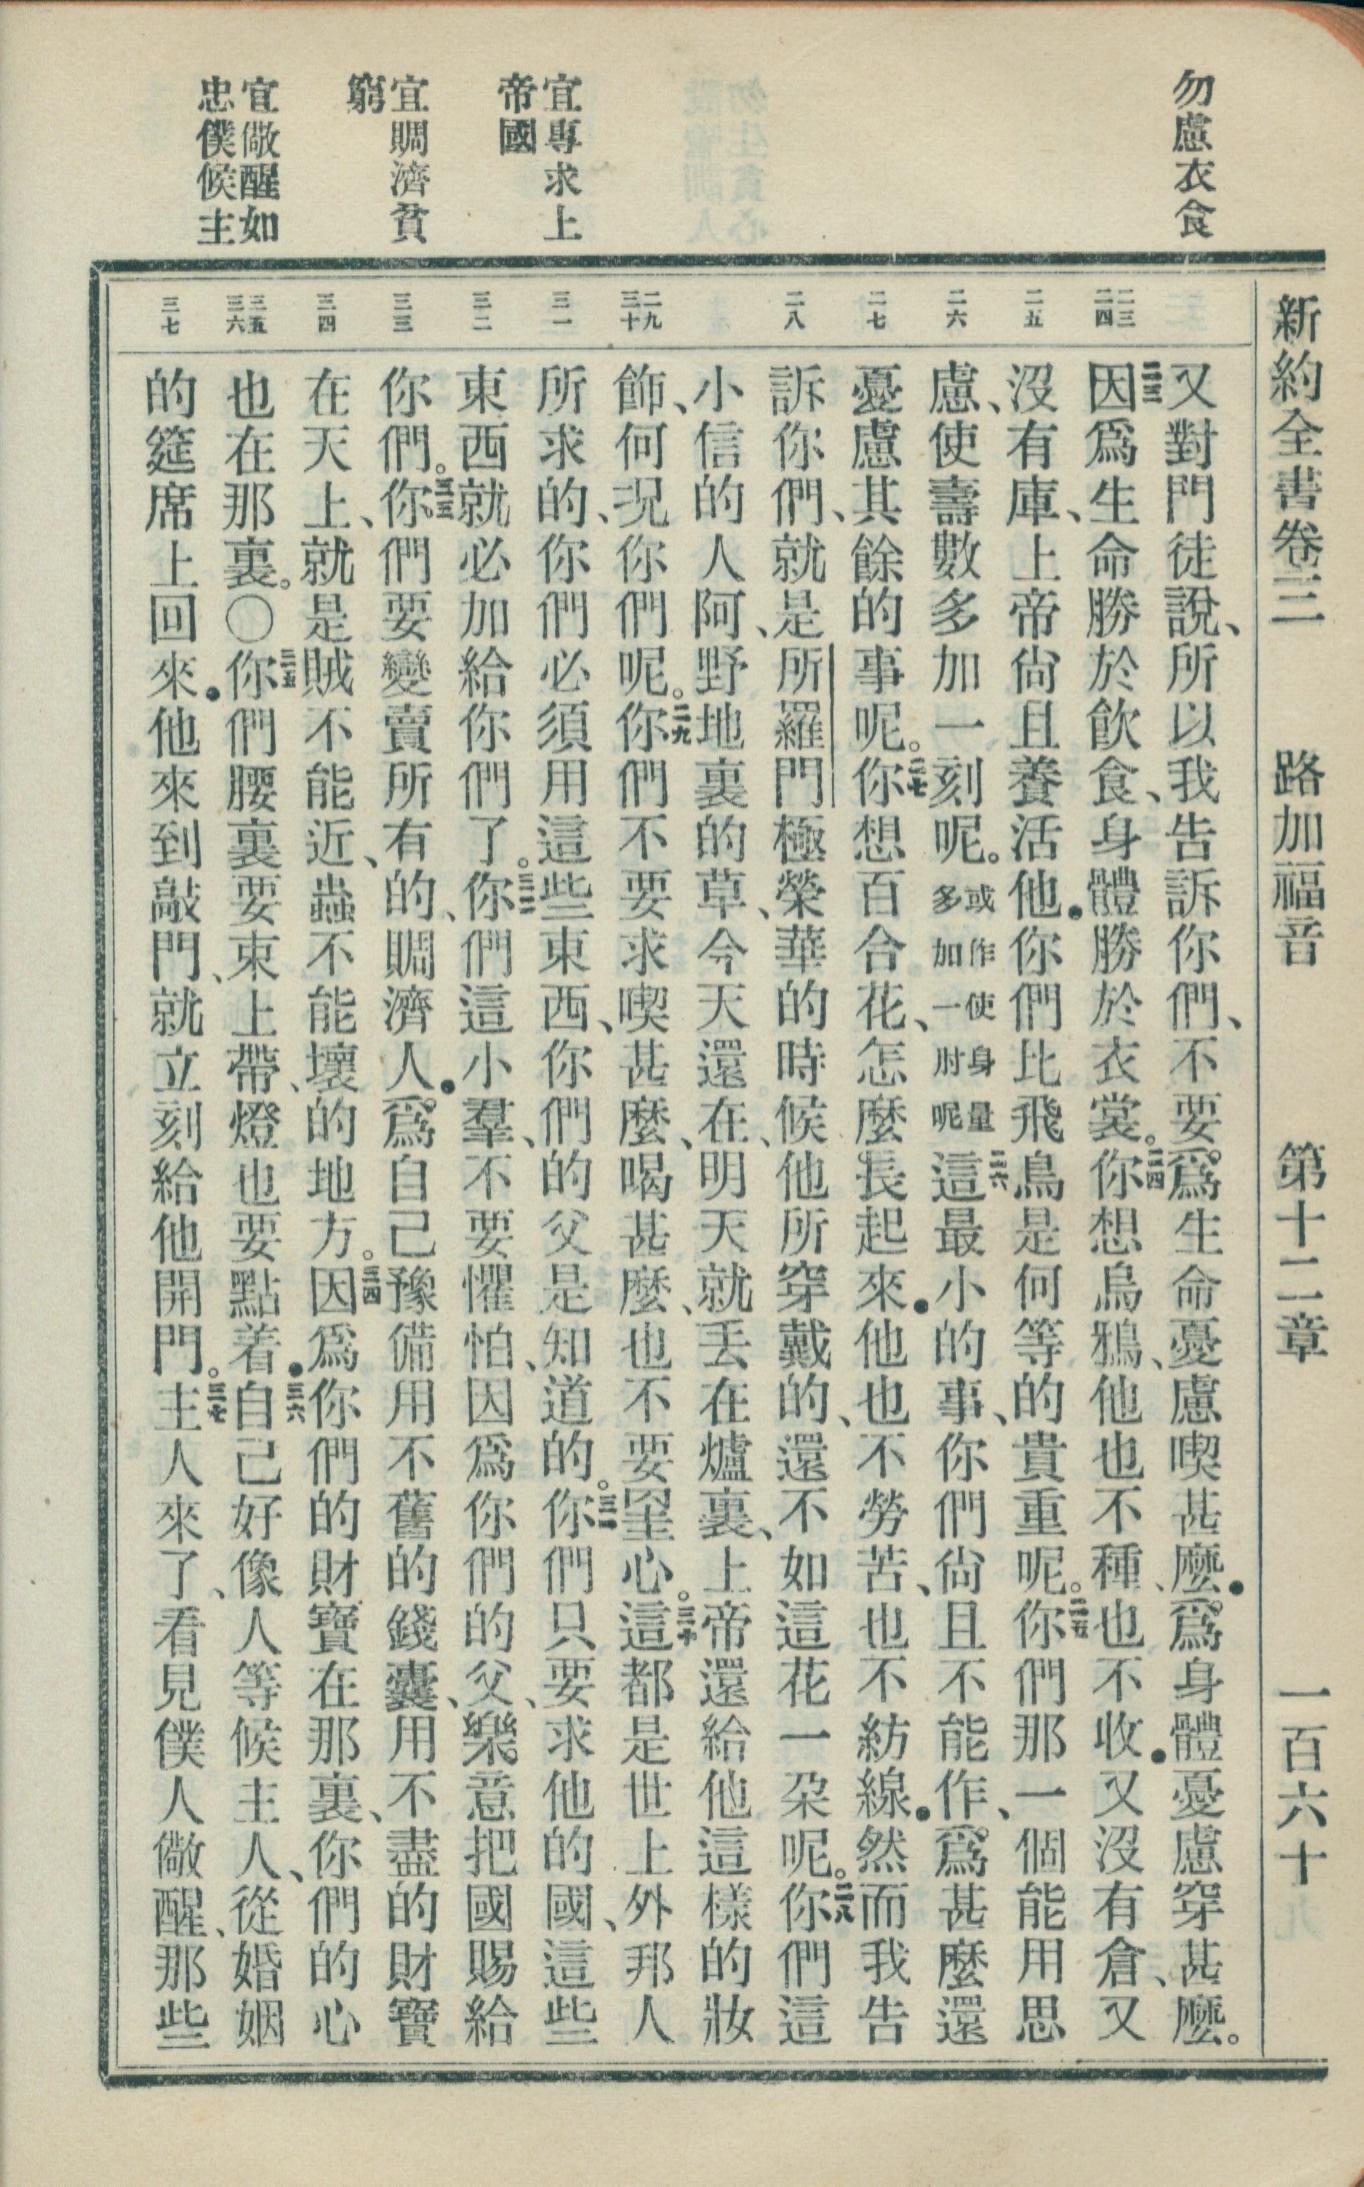 新約全書卷三　路加福音　第十二章　一百六十
勿慮衣食
宜專求上
帝國
宜賙濟貧
窮
宜儆醒如
忠僕候主
二三
二四
二五
二六
二七
二八
二九
三十
三一
三二
三三
三四
三五
三六
三七
又對門徒說、所以我告訴你們、不要爲生命憂慮喫甚麼．爲身體憂慮穿甚麼。
二三因爲生命勝於飲食、身體勝於衣裳。二四你想烏鴉、他也不種、也不收．又沒有倉、又
沒有庫、上帝尙且養活他．你們比飛鳥是何等的貴重呢。二五你們那一個能用思
慮、使壽數多加一刻呢。或作使身量多加一肘呢二六這最小的事、你們尙且不能作、爲甚麼還
憂慮其餘的事呢。二七你想百合花、怎麼長起來．他也不勞苦、也不紡線．然而我告
訴你們、就是所羅門極榮華的時候、他所穿戴的、還不如這花一朶呢。二八你們這
小信的人阿、野地裏的草、今天還在、明天就丟在爐裏、上帝還給他這樣的妝
飾、何况你們呢。二九你們不要求喫甚麼、喝甚麼、也不要罣心。三十這都是世上外邦人
所求的、你們必須用這些東西、你們的父是知道的。三一你們只要求他的國、這些
東西就必加給你們了。三二你們這小羣、不要懼怕、因爲你們的父、樂意把國賜給
你們。三三你們要變賣所有的、賙濟人．爲自己豫備用不舊的錢囊、用不盡的財寶
在天上、就是賊不能近、蟲不能壞的地方。三四因爲你們的財寶在那裏、你們的心
也在那裏。〇三五你們腰裏要束上帶、燈也要點着．三六自己好像人等候主人、從婚姻
的筵席上回來．他來到敲門、就立刻給他開門。三七主人來了、看見僕人儆醒、那些